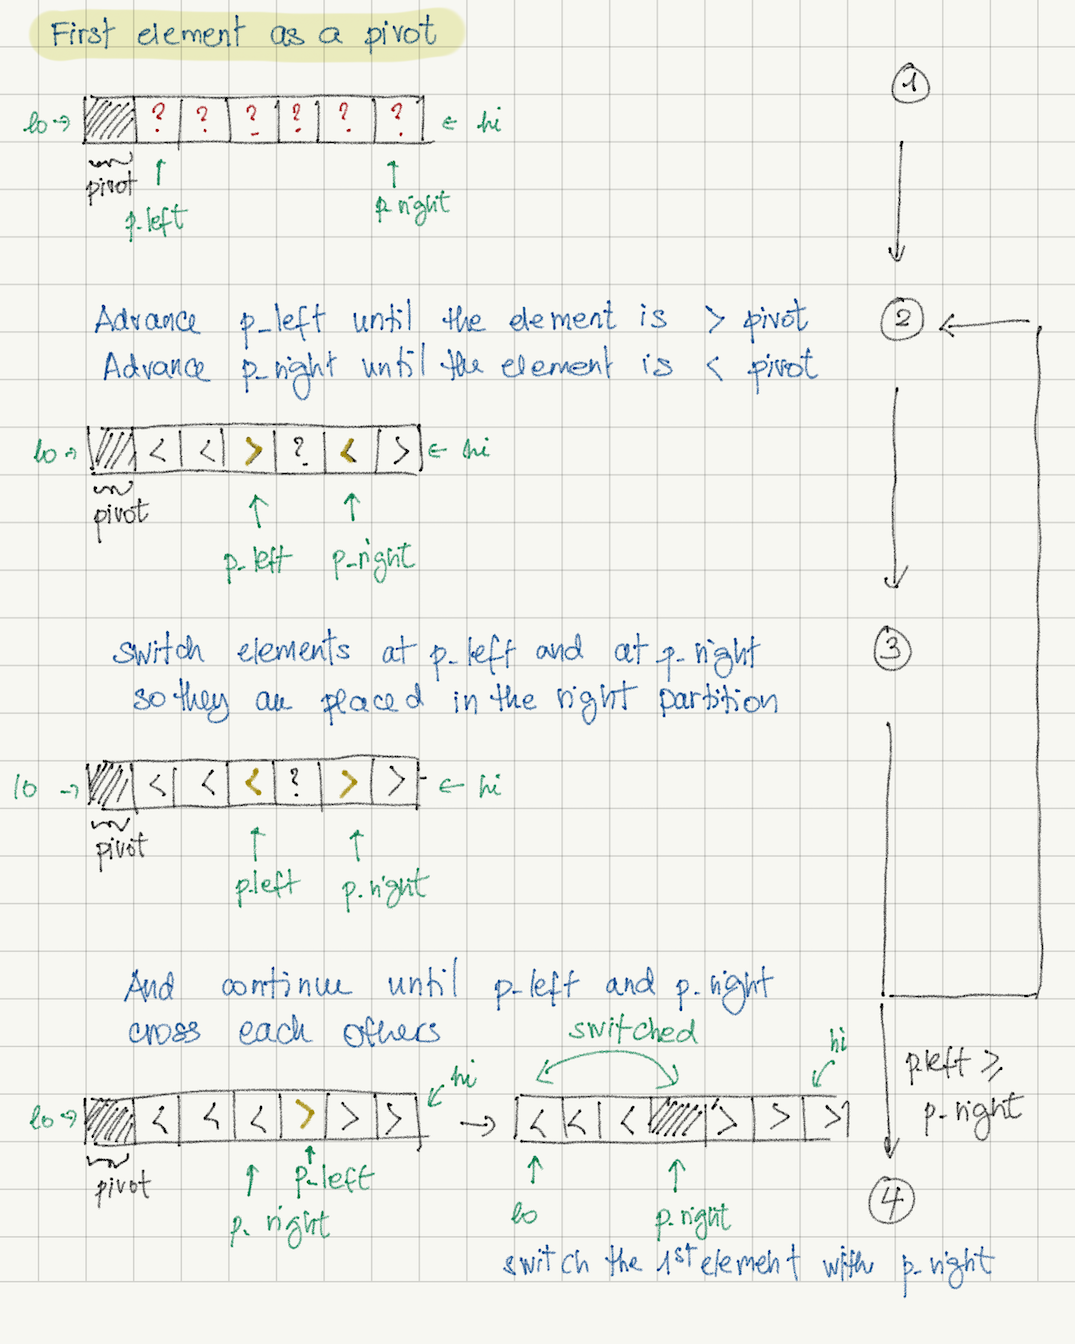 First element as a pivot
1
lo → ? ? ? ? ? ? ← hi
pivot
p-left
p-right
Advance p-left until the element is > pivot
2
Advance p-right until the element is < pivot
lo → < < > ? < > ← hi
pivot
p-left p-right
switch elements at p-left and at p-right
3
so they are placed in the right partition
lo → < < < ? > > ← hi
pivot
p-left p-right
And continue until p-left and p-right
cross each others
switched
hi
hi
p-left ⩾
p-right
lo → < < < > > > → < < < > > >
pivot
p-left
p-right
lo
p-right
4
switch the 1st element with p-right